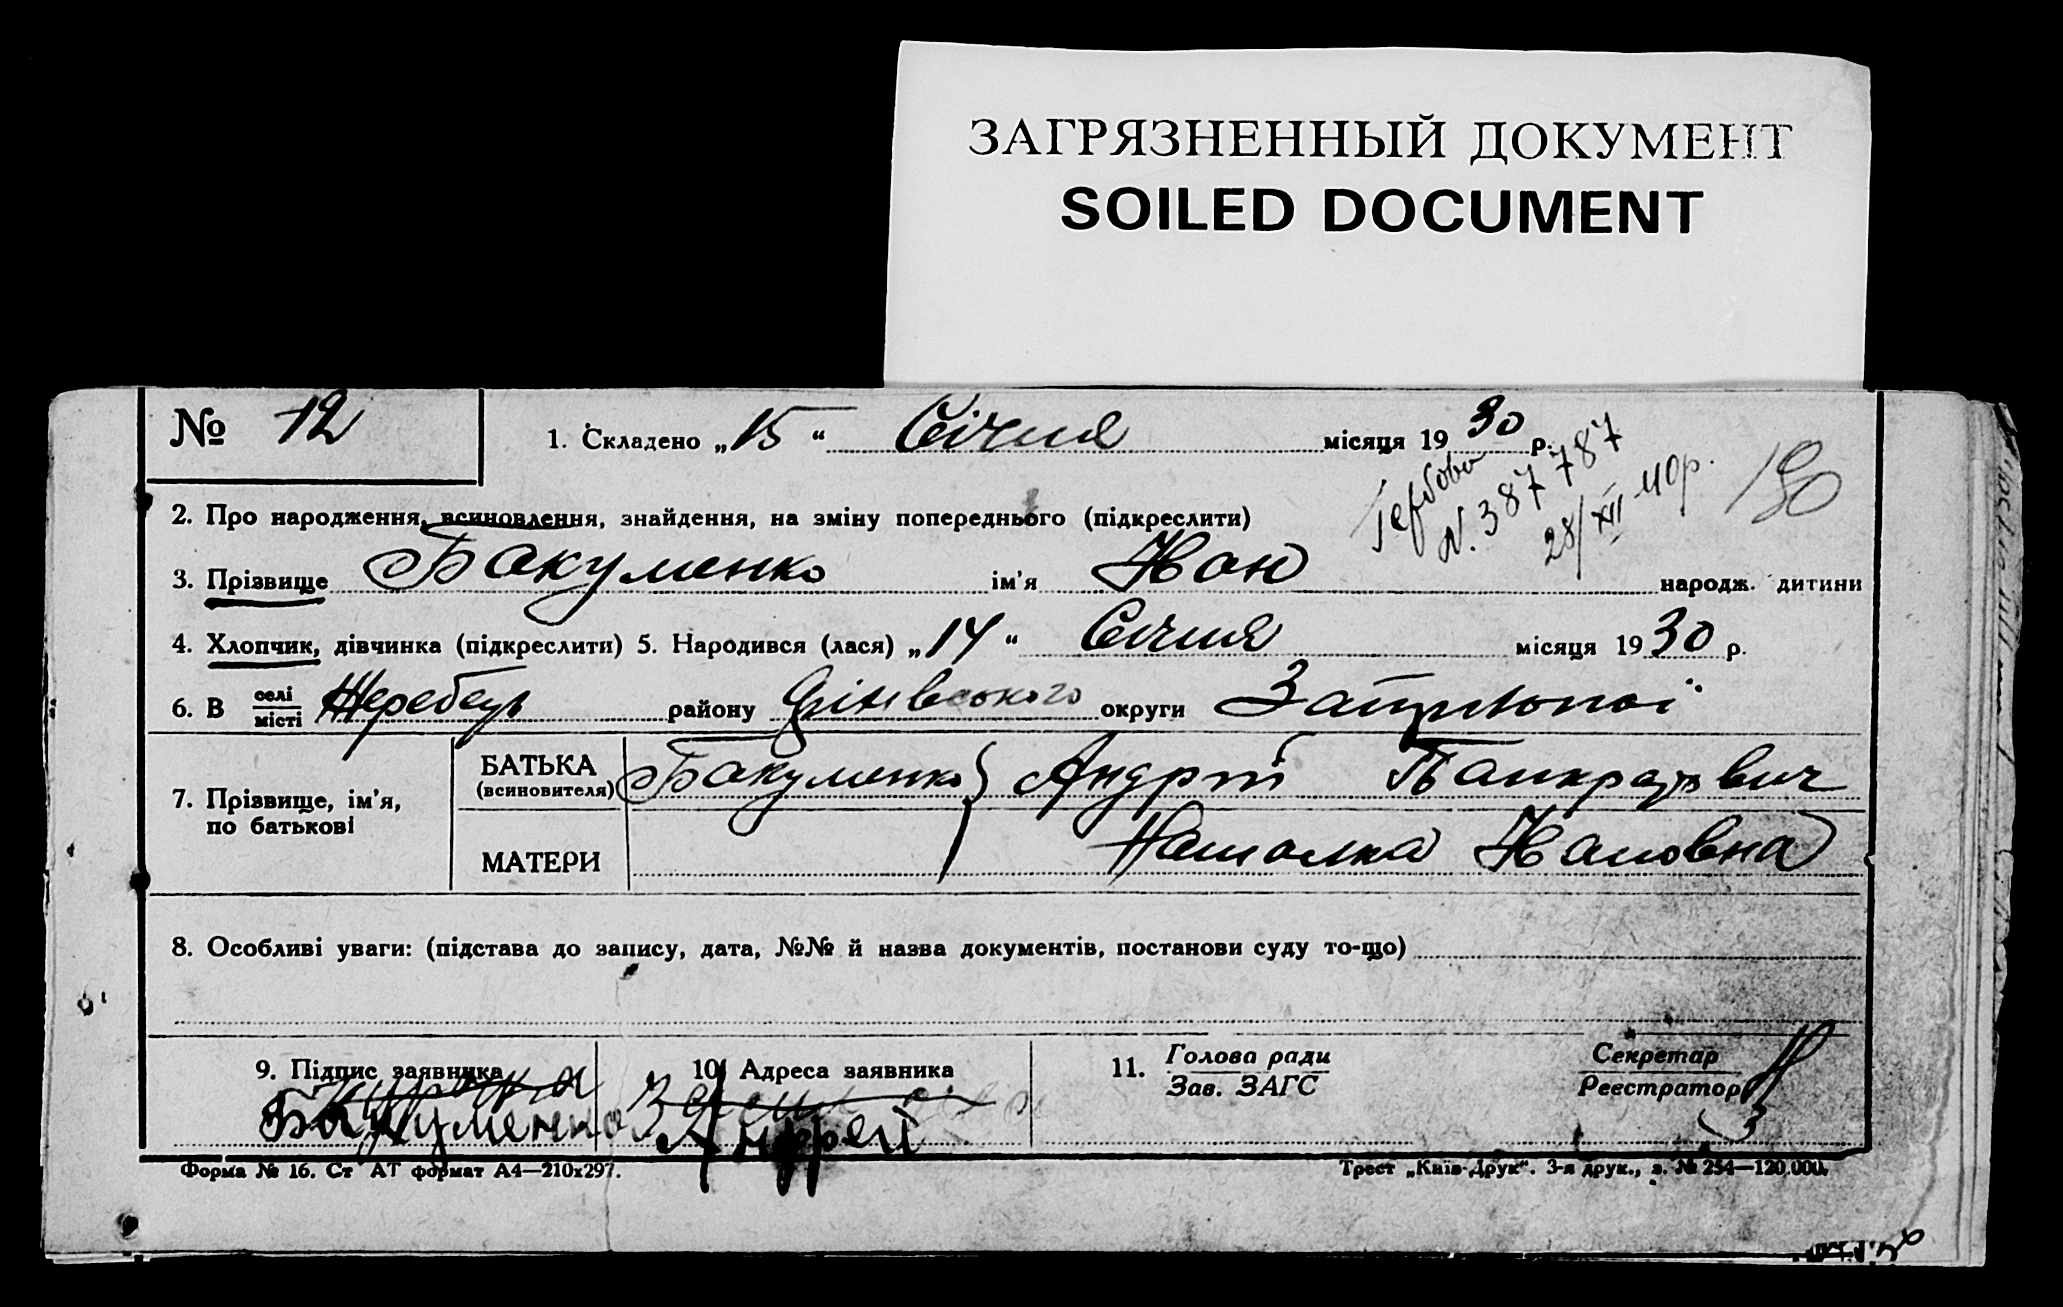 ЗАГРЯЗНЕННЫЙ ДОКУМЕНТ
SOILED DOCUMENT
№ 12
1. Складено „15“ Січня місяця 1930 р.
Гербова
N. 387787
28/XII 40р.
190
2. Про народження, всиновлення, знайдення, на зміну попереднього (підкреслити)
3. Прізвище Бакуменко ім'я Иван народж. дитини
4. Хлопчик, дівчинка (підкреслити) 5. Народився (лася) „14“ Січня місяця 1930 р.
6. В селі місті Жеребець району округи
7. Прізвище, ім'я, по батькові
БАТЬКА (всиновителя) Бакуменко Андрій Панкратович
МАТЕРИ Ивановна
8. Особливі уваги: (підстава до запису, дата, №№ й назва документів, постанови суду то-що)
9. Підпис заявника
10. Адреса заявника
Бакуменко Андрей
11. Голова ради
Зав. ЗАГС
Секретар
Реєстратор
Форма № 16. Ст АТ формат А4—210x297.
Трест „Київ-Друк“. 3-я друк., з. № 254—120.000.